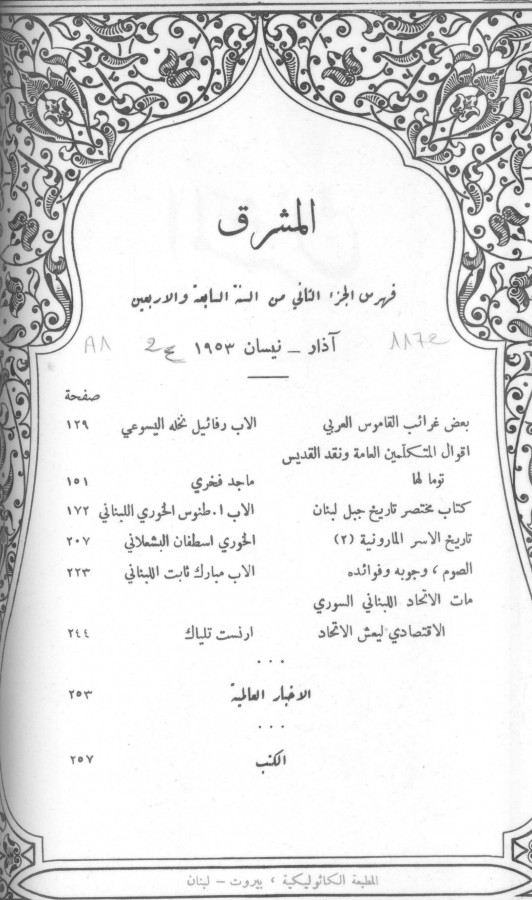 المشرق
فهرس الجزء الثاني من السنة السابعة والاربعين
آذار – نيسان ١٩٥٣
1172
ع2
A1
صفحة
بعض غرائب القاموس العربي الاب رفائيل نخله اليسوعي ١٢٩
اقوال المتكلّمين العامة ونقد القديس
توما لها ماجد فخري ١٥١
كتاب مختصر تاريخ جبل لبنان الاب ا. طنوس الخوري اللبناني ١٧٢
تاريخ الاسر المارونية (٢) الخوري اسطفان البشعلاني ٢٠٧
الصوم ، وجوبه وفوائده الاب مبارك ثابت اللبناني ٢٢٣
مات الاتحاد اللبناني السوري
الاقتصادي ليعش الاتحاد ارنست تلياك ٢٤٤
...
الاخبار العالمية ٢٥٣
...
الكتب ٢٥٧
المطبعة الكاثوليكية ، بيروت – لبنان